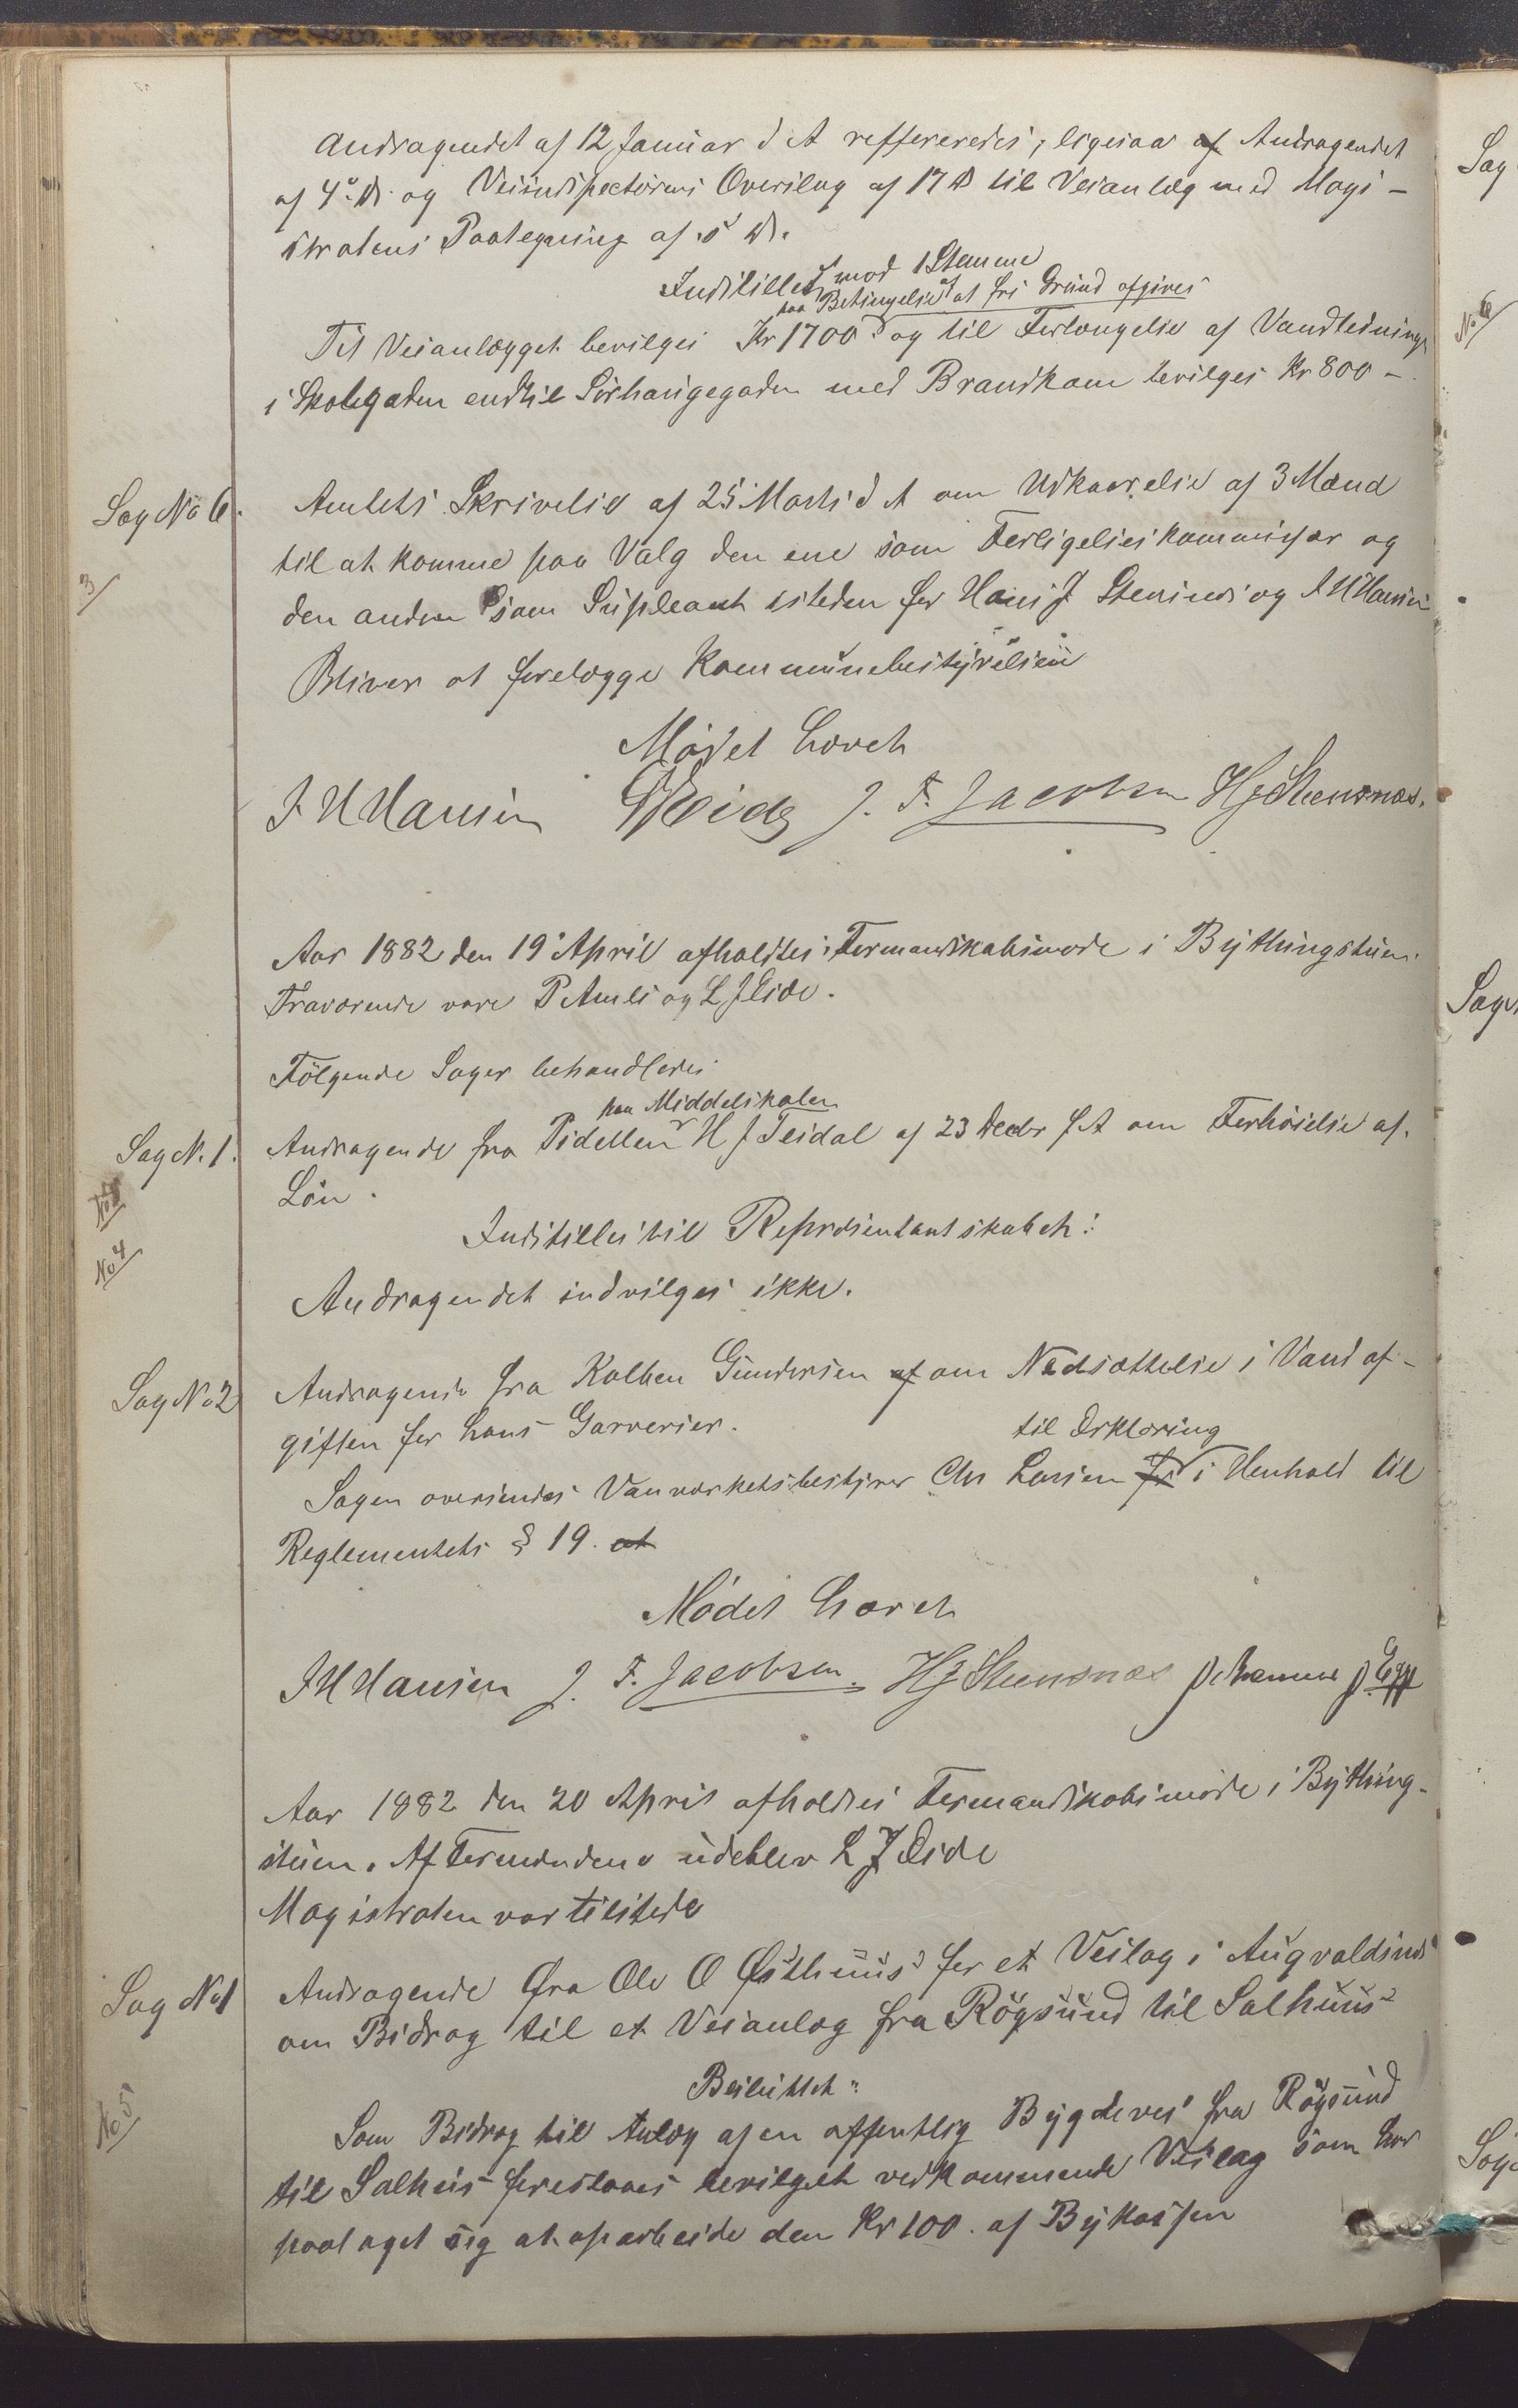 Andragendet af 12 Januar d A reffereredes, ligesaa af Andragendet
af 4de ds. og Veiinspectørens Overslag af 17 ds til Veianlæg med Magi-
stratens Paategning af s d.
Indstilles mod 1 Stemme
paa Betingelse af at fri Grund afgives
Til Veianlægget bevilges Kr 1700 og til Forlængelse af Vandledningen
i Skolegaden endtil Sørhaugegaden med Brandkam bevilges Kr 800 -
Sag No 6.
Amtets Skrivelse af 25 Marts d A om Udkaarelse af 3 Mænd
til at komme paa Valg den ene som Forligelseskommissær og
3/
den anden som Supleant isteden for Hans J Stensnes og J H Hansen
Bliver at forelægge Kommunebestyrelsen
Mødet hævet
J H Hansen Eide J. F. Jacobsen H J Stensnæs.
Aar 1882 den 19 April afholdtes Formandskabsmøde i Bythingstuen.
Fraværende vare P Amli og L J Eide.
Følgende Sager behandledes
paa Middelskolen
Sag N. 1.
Andragende fra Pidellen H J Teidal af 23 Decbr f A om Forhøielse af
Løn.
Indstilles til Repræsentantskabet:
No 4
Andragendet indvilges ikke.
Sag No 2
Andragende fra Kolben Gundersen af om Nedsættelse i Vandaf-
giften for hans Garverier.
til Erklæring
Sagen oversendes Vanværksbestyrer Chr Larsen fr i Henhold til
Reglementets § 19. at
Mødet hævet
J H Hansen J. F. Jacobsen. H J Stensnæs
Aar 1882 den 20 April afholdtes Formandskabsmøde i Bything-
stuen. Af Formændene udeblev L J Eide
Magistraten var tilstede
Sag No 1
Andragende fra Ole O Østhuus for et Veilag i Augvaldsnes
om Bidrag til et Veianlæg fra Røgsund til Salhuus
Besluttet:
No 5
Som Bidrag til Anlæg af en offentlig Bygdevei fra Røgsund
til Salhus foreslaaes bevilget vedkommende Veilag som har
paataget sig at oparbeide den Kr 100. af Bykassen
Sag
No 6